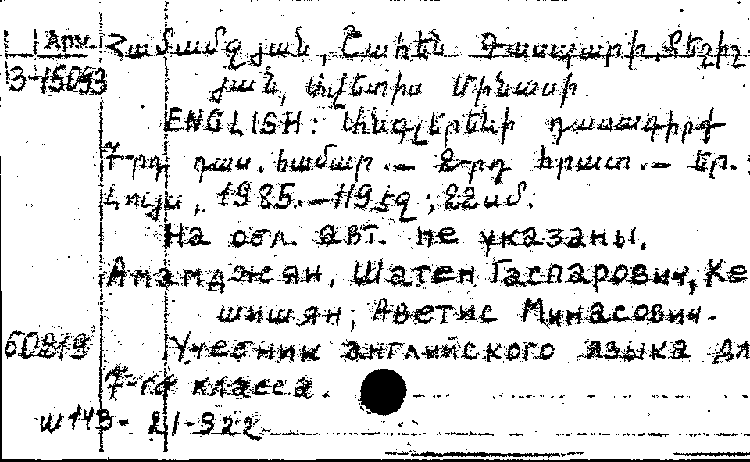 Арм. Համամզյան, Շահեն Գասպարի, Քեշիշ-
3-15093 յան, Ավետիս Մինասի
ENGLISH: Անգլերենի դասագիրք
7-րդ դաս. համար.— 2-րդ հրատ.— Եր.:
Լույս, 1985.—119 էջ; 22 սմ.
На обл. авт. не указаны.
Амамджян, Шаген Гаспарович, Ке-
шишян, Аветис Минасович.
60819 Учебник английского языка дл
7-го класса.